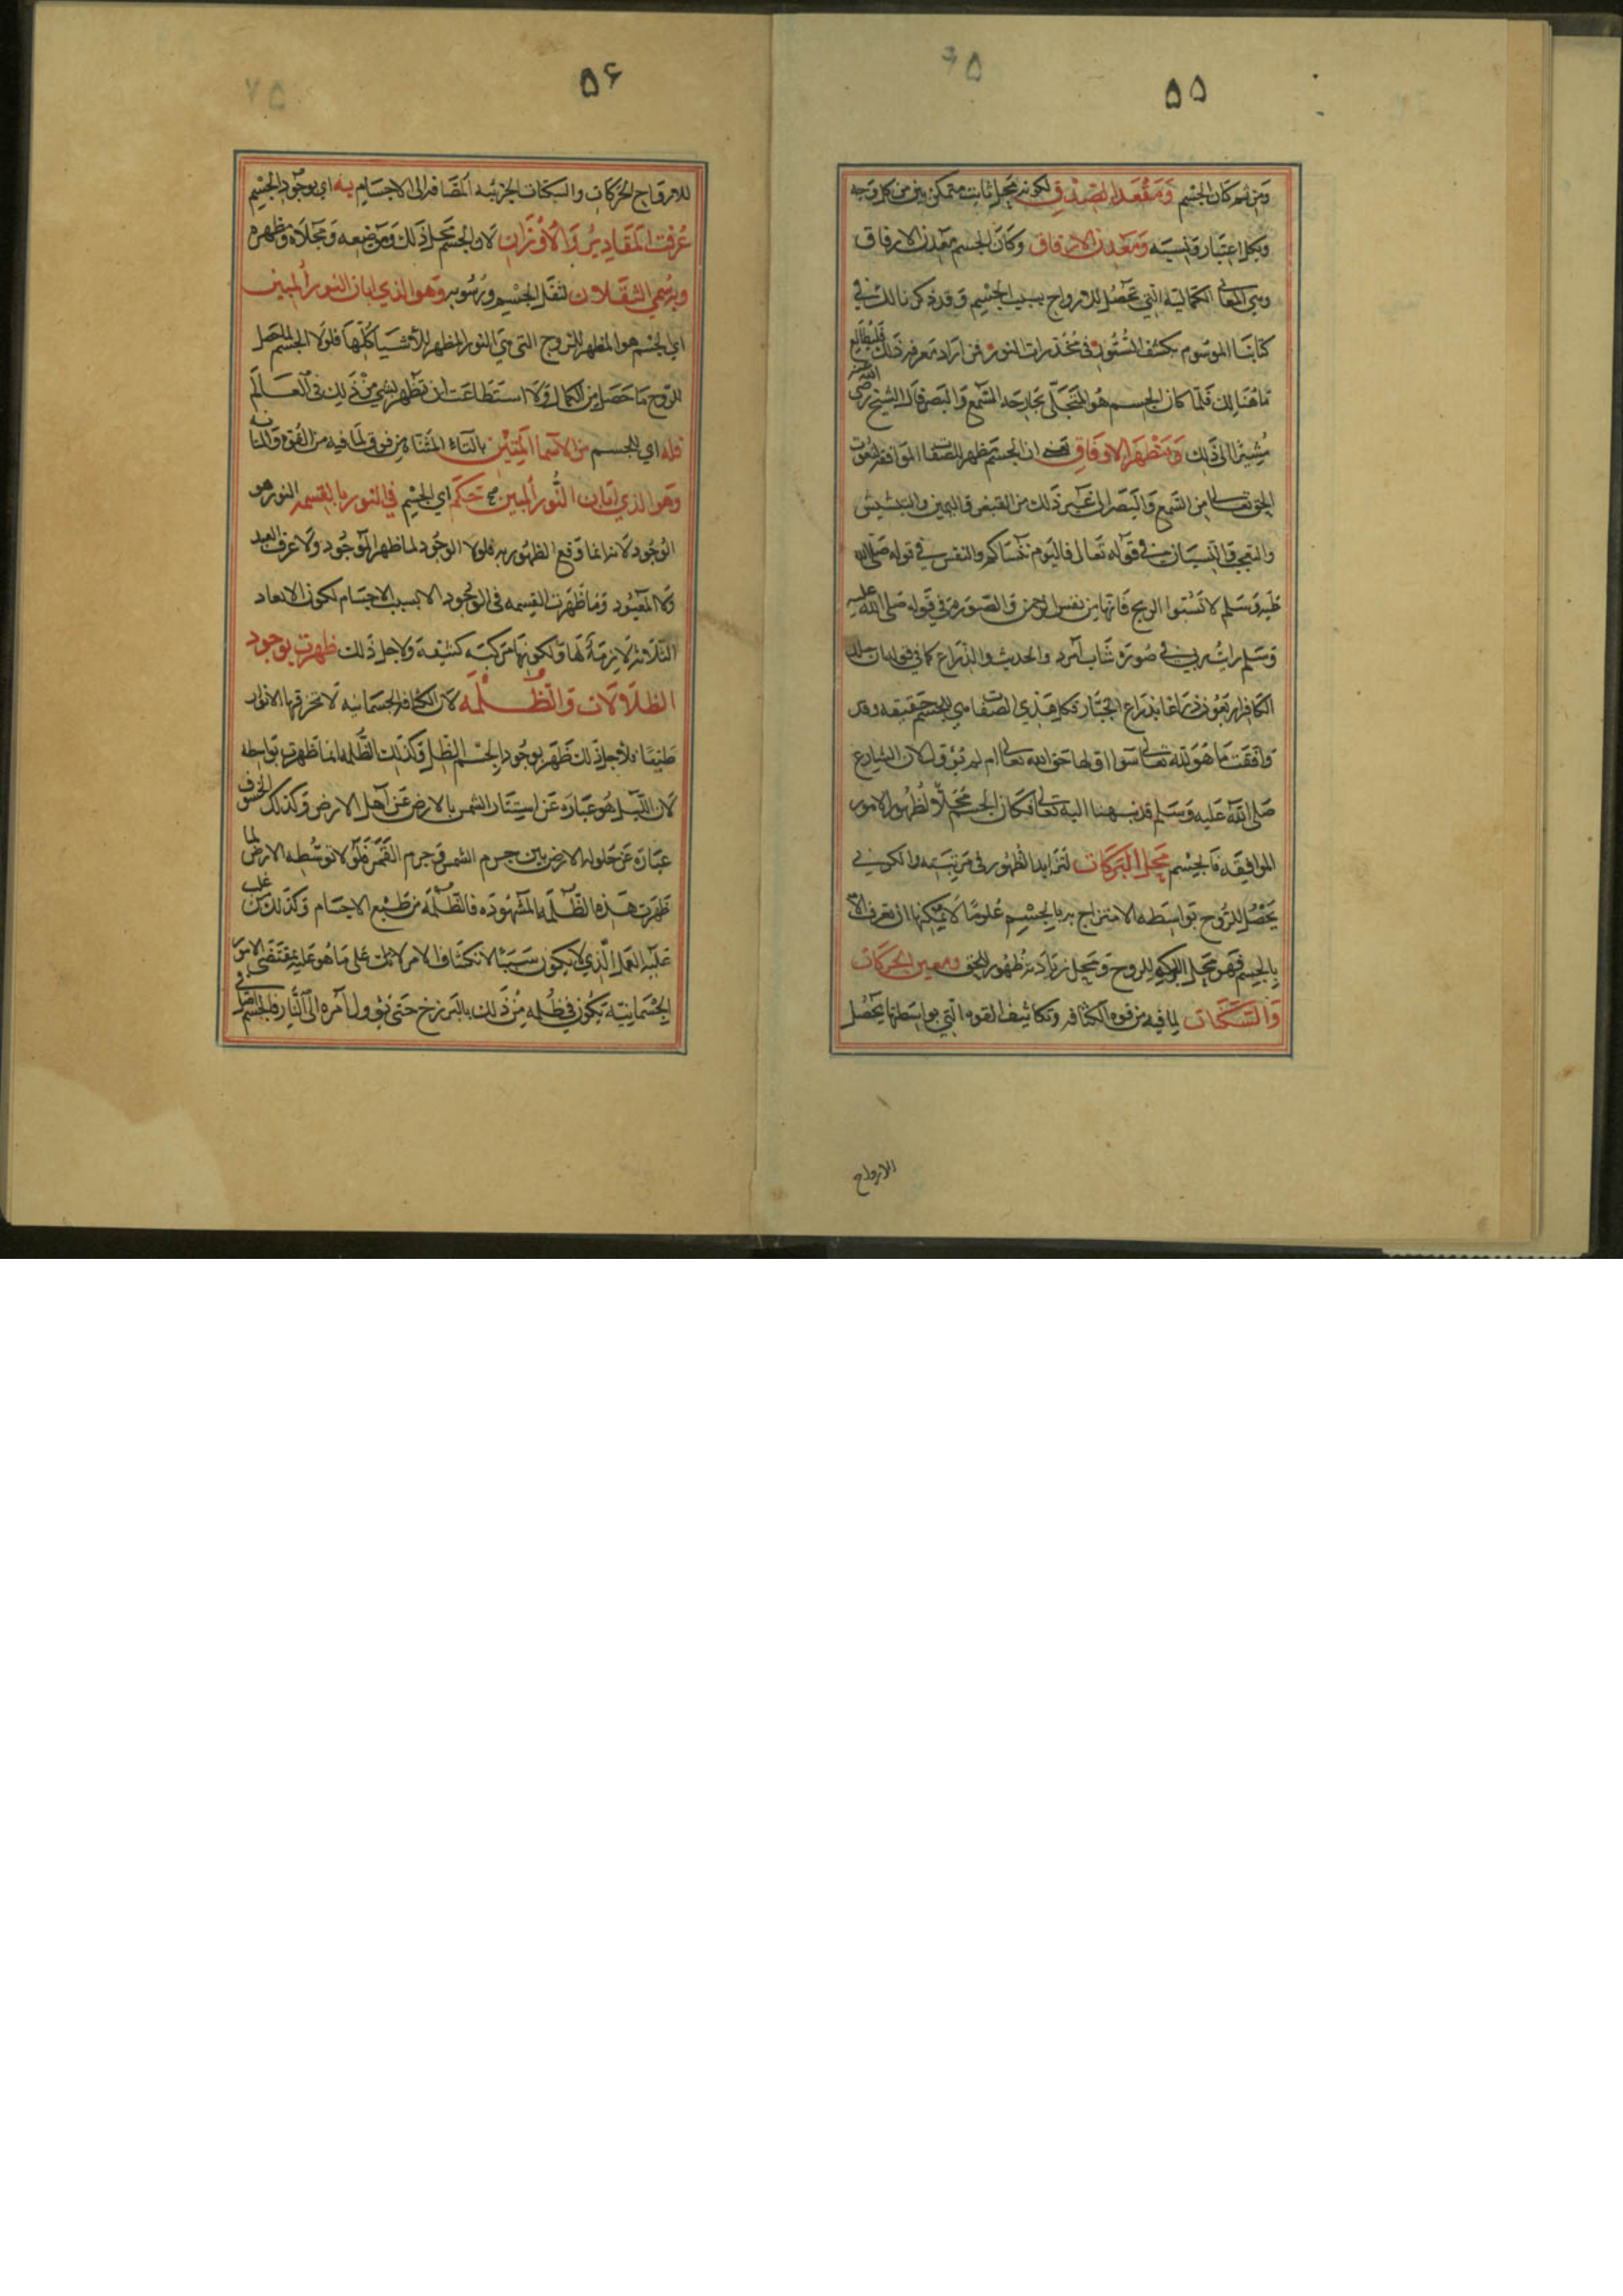 ۵۵
ومن ثم كان الجسم ومقعد الصدق لكونه محل ثابت متمكن من كل وجه
وبكل اعتبار ونسبه ومعدن الارفاق وكان الجسم معدن الارفاق
وهي المعاني الكماليه التي تحصل للارواح بسبب الجسم وقد ذكرنا ذلك في
كتابنا الموسوم بكشف الستور في مخدرات النور فمن اراد معرفه ذلك فليطالع
ما هنالك فلما كان الجسم هو المتجلي بجارحه السمع والبصر قال الشيخ رضي الله عنه
مشيرا الى ذلك ومظهر الاوفاق ان الجسم مظهر الصفات الموافقه لنعوت
الحق تعالى من السمع والبصر الى غير ذلك من القبض واليمين والتبشيش
والتعجب والنسيان في قوله تعالى فاليوم ننساكم والنفس في قوله صلى الله
عليه وسلم لا تسبوا الريح فانها من نفس الرحمن والصوره في قوله صلى الله عليه
وسلم رايت ربي في صورة شاب امرد والحديث والذراع كما في قوله ان جلد
الكافر اربعون ذراعا بذراع الجبار فكل هذي الصفات هي للجسم حقيقه وقد
وافقت ما هو لله تعالى سوا اولها حق الله تعالى ام لم تؤول لان الشارع
صلى الله عليه وسلم قد نسبها اليه تعالى فكان الجسم محلا لظهور الامور
الموافيقه فالجسم محل البركات لتزايد الظهور في مرتبته والكون في
يحصل للروح بواسطه الامتزاج به بالجسم علوما لا يمكنها ان تعرف الا
بالجسم فهو محل البركه للروح ومحل زيادة ظهور الحق ومعين الحركات
والسكنات لما فيه من قوه الكثافه وتكاثيف القوه التي بواسطتها يحصل
الارواح
۵۶
للارواح الحركات والسكنات الجزئيه المضافه الى الاجسام به اي بوجود الجسم
عرفت المقادير والاوزان لان الجسم محل ذلك وموضعه ومجلاه ومظهره
وبه سمي الثقلان لثقل الجسم ورسوبه وهو الذي ابان النور المبين
اي الجسم هو المظهر للروح التي هي النور المظهر للأشيا كلها فلولا الجسم لما حصل
للروح ما حصل من الكمال ولا استطاعت ان تظهر بشي من ذلك في العالم
فله اي للجسم من الاسما المتين بالتاء المثناة من فوق لما فيه من القوه والمتانه
وهو الذي ابان النور المبين تحكم اي الجسم في النور بالقسمه النور هو
الوجود لانه انما وقع الظهور به فلولا الوجود لما ظهر الموجود ولا عرف العبد
ولا المعبود وما ظهرت القسمه في الوجود الا بسبب الاجسام لكون الابعاد
الثلاثه لازمة لها ولكونها مركبه كثيفة ولاجل ذلك ظهرت بوجود
الظلالات والظلمه لان الكثافه الجسمانيه لا تخرقها الانوار
طبعا فلاجل ذلك ظهر بوجود الجسم الظل وكذلك الظلمه انما ظهرت بواسطه
لان الليل هو عبارة عن استتار الشمس بالارض عن اهل الارض وكذلك الخسوف
عبارة عن حلول الارض بين جرم الشمس وجرم القمر فلولا توسطه الارض لما
ظهرت هذه الظلمه المشهوده فالظلمة من طبع الاجسام وكذلك من غلب
عليه العمل الذي لا يكون سببا لانكشاف الامر لانك على ما هو عليه بمقتضى الامور
الجسمانية يكون في ظلمه من ذلك بالبرزخ حتى يؤول امره الى النار فالجسم